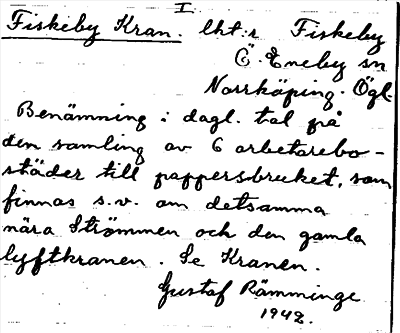 I.
Fiskeby Kran. lht:s Fiskeby
Ö. Eneby sn
Norrköping. Ögl.
Benämning i dagl. tal på
den samling av 6 arbetarebo-
städer till pappersbruket, som
finnas s.v. om detsamma
nära Strömmen och den gamla
lyftkranen. Se Kranen.
Gustaf Rämminge
1942.